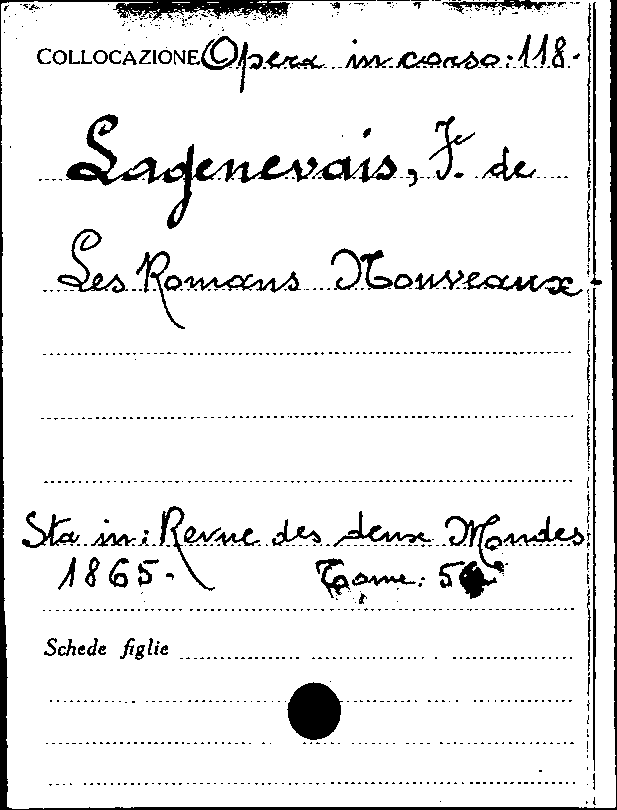 COLLOCAZIONE Opera in corso: 118.
Lagenevais, F. de
Les Romans Nouveaux -
Sta in: Revue des deux Mondes
1865. - Tome:
Schede figlie